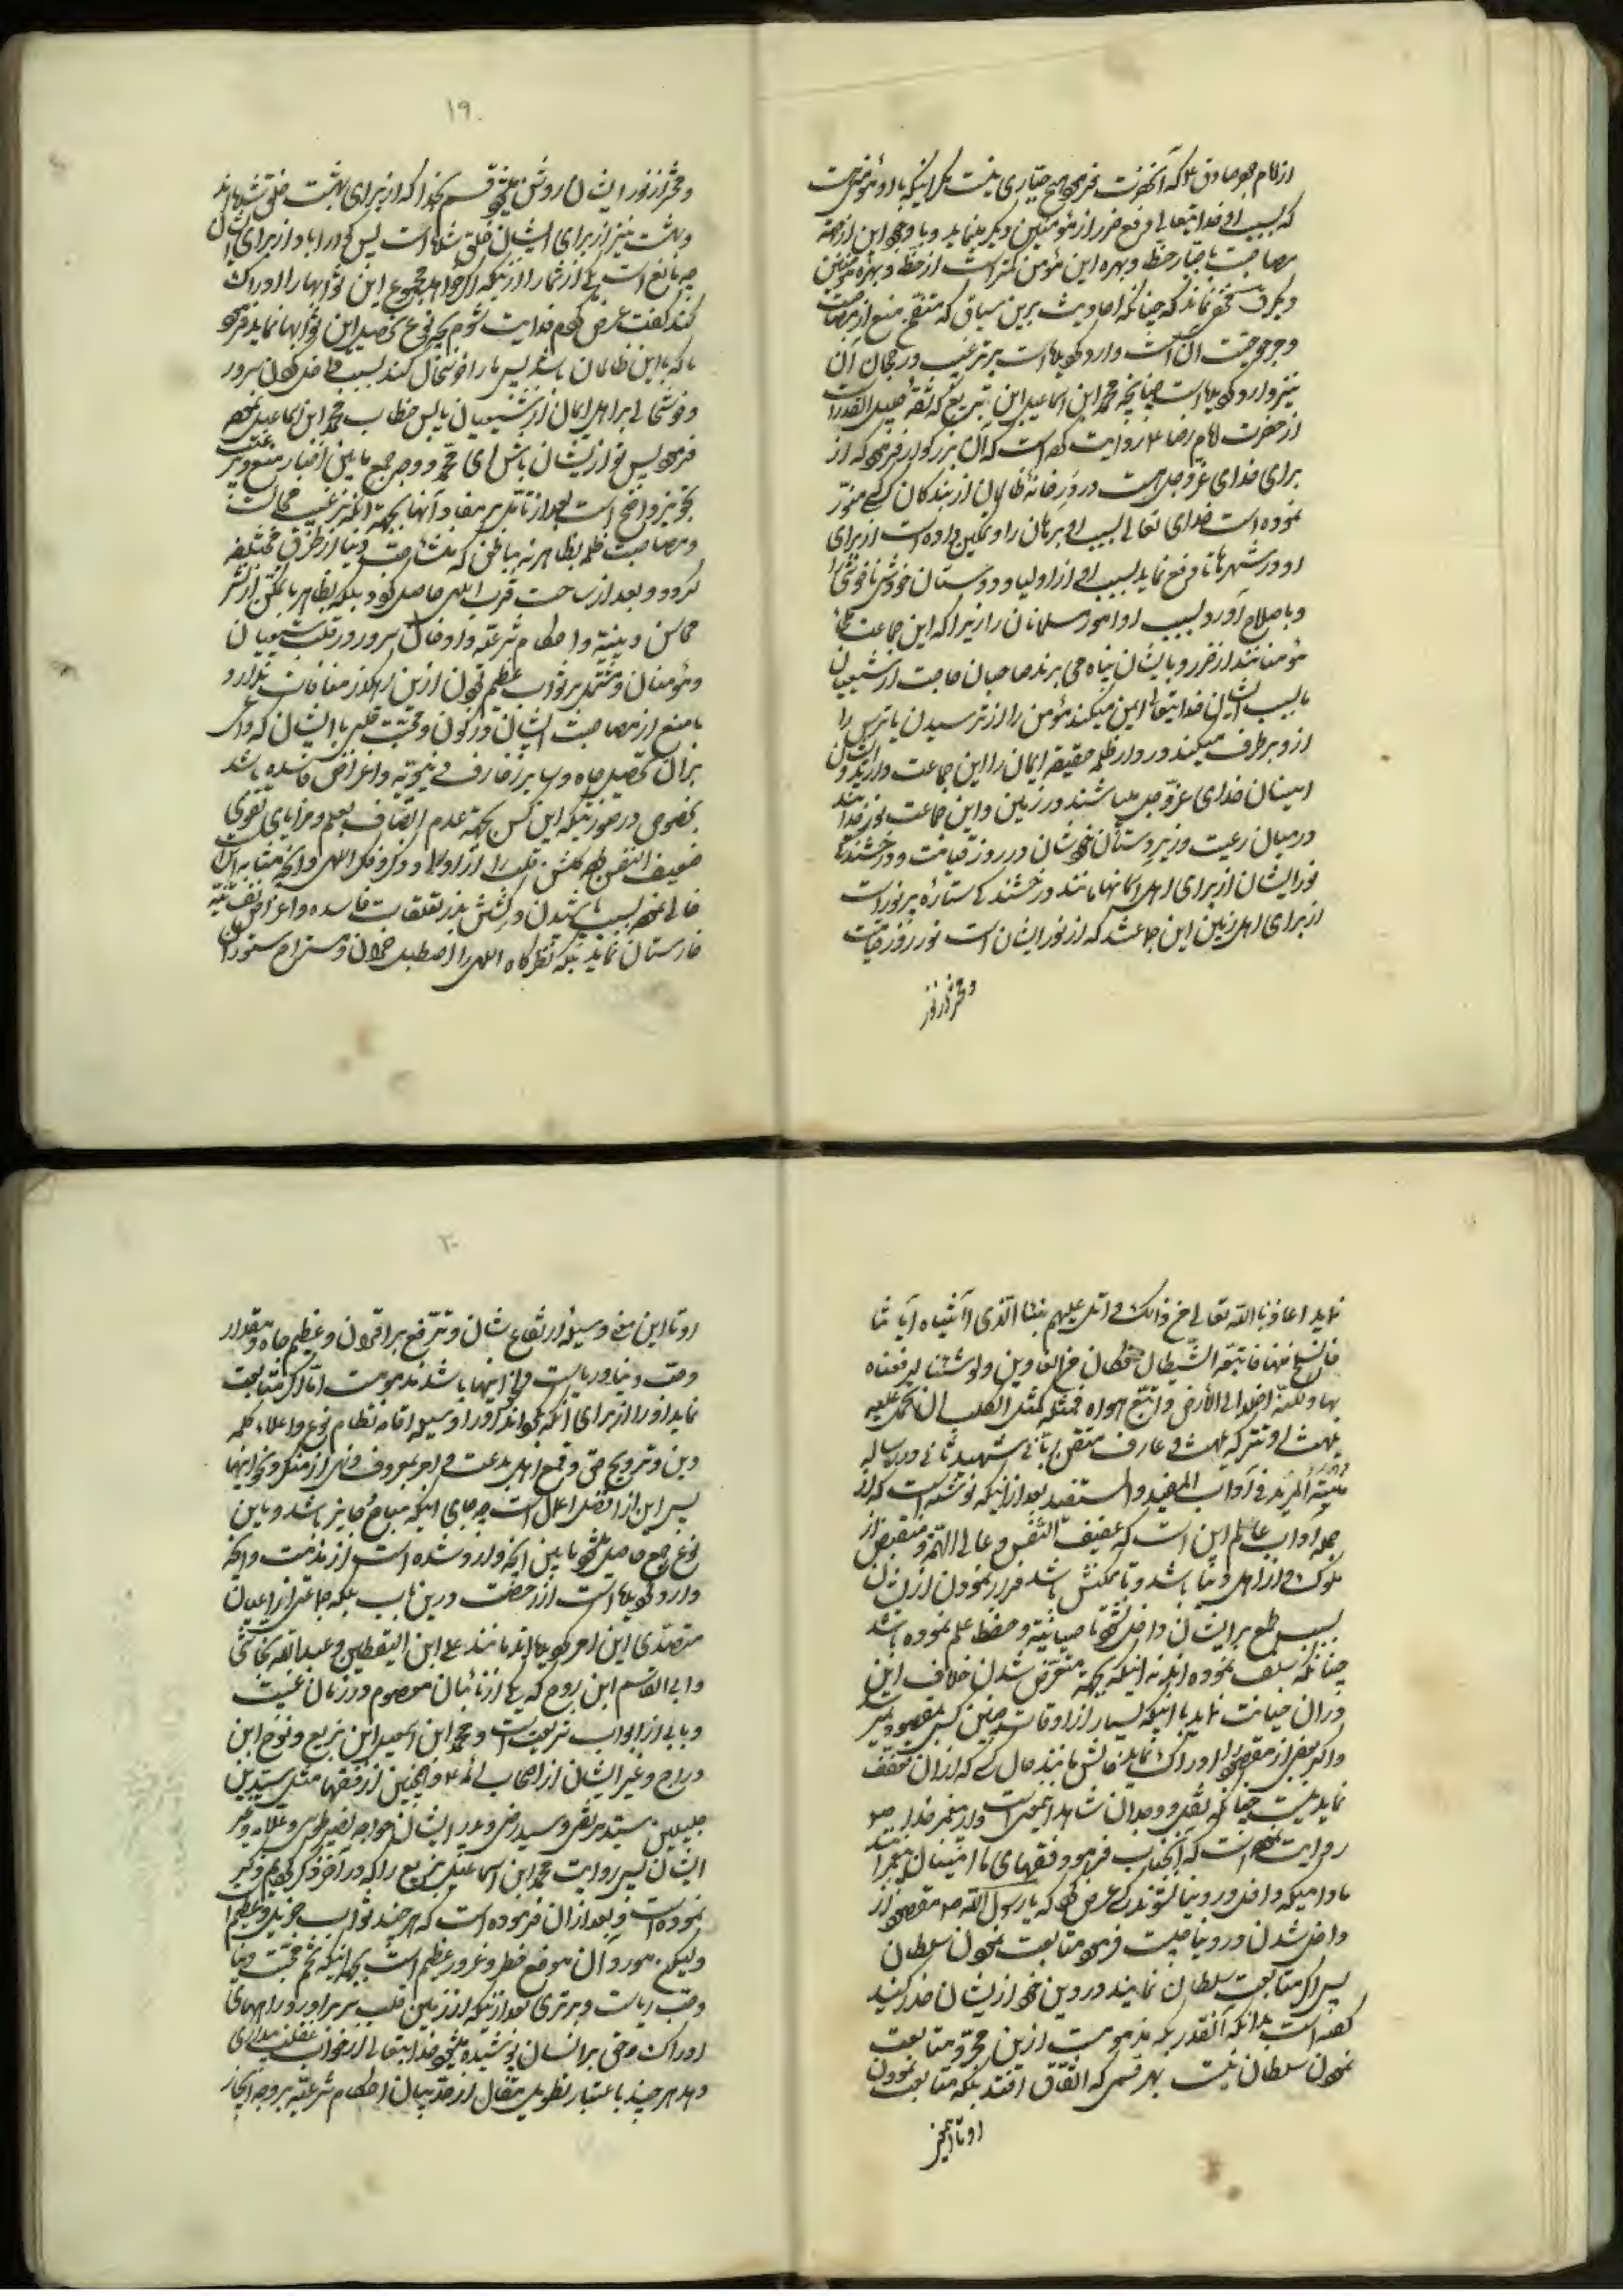 از امام جعفر صادق ع که آنحضرت فرمود هیچ جباری نیست مگر اینکه با او مؤمنی هست
که بسبب او خدایتعالی رفع ضرر از مؤمنین دیگر مینماید و با وجود این از جهة
مصاحبت با جبار حظ و بهره این مؤمن کمتر است از حظ و بهره مؤمنین
دیگر مخفی نماند که چنانکه احادیث برین سیاق که منع از مصاحبت
و مرجوحیت آن است وارد گردیده است بر ترغیب و رجحان آن
نیز وارد گردیده است چنانچه محمد ابن اسماعیل ابن بزیع که ثقه جلیل القدر است
از حضرت امام رضا ع روایت کرده است که آن بزرگوار فرمود که از
برای خدای عز و جل هست در در خانه ظالمان از بندگان کسی که منور
نموده است خدای تعالی بسبب او برهان را و تمکین داده است از برای
او در شهرها تا رفع نماید بسبب او از اولیا و دوستان خودش ناخوشی را
و باصلاح آورد بسبب او امور مسلمانان را زیرا که این جماعت ملجأ
مؤمنانند از ضرر و بایشان پناه می برند صاحبان حاجت از شیعیان
ما بسبب ایشان خدایتعالی ایمن میکند مؤمن را از ترسیدن یا ترس را
از و برطرف میکند در دار ظلمه حقیقه ایمان را این جماعت دارند و ایشان
امینان خدای عز و جل میباشند در زمین و این جماعت نور خدایند
در میان رعیت و زیردستان خودشان در روز قیامت و درخشنده
نور ایشان از برای اهل آسمانها مانند درخشندگی ستاره پر نور است
از برای اهل زمین این جماعتند که از نور ایشان است نور روز قیامت
و محشر از نور
۱۹
و محشر از نور ایشان روشن میشود قسم بخدا که از برای بهشت خلق شده اند
و بهشت نیز از برای ایشان خلق شده است پس گوارا باد از برای ایشان
چه مانع است یکی از شما را از اینکه اگر خواهد مجموع این ثوابها را ادراک
کند گفت عرض کردم فدایت شوم بچه نوع تحصیل این ثوابها نماید فرمود
با که باین ظالمان باشد پس ما را خوشحال کند بسبب داخل کردن سرور
و خوشحالی بر اهل ایمان از شیعیان ما پس خطاب بمحمد ابن اسماعیل نموده
فرمود پس تو از ایشان باش ای محمد و وجه جمع مابین اخبار منع و ترغیب
تجویز واضح است بعد از تأمل بر مفاد آنها بجهة آنکه ترغیب مجالست
و مصاحبت ظلمه بظاهر نه بباطن که منشأ محبت دنیا از طرق مختلفه
گردد و بعد از ساحت قرب الهی حاصل گردد بلکه بظاهر با تمکن از نشر
محاسن دینیه و احکام شرعیه و ادخال سرور در قلب شیعیان
و مؤمنان و مشتمل بر ثواب عظیم بودن ازین رهگذر منافات ندارد و
با منع از مصاحبت ایشان و رکون و محبت قلبی با ایشان که داعی
بر آن تحصیل جاه و سایر زخارف دنیویه و اغراض فاسده باشد
بخصوص در صورتیکه این کس بجهة عدم اتصاف بعلم و مزایای تقوی
ضعیف النفس بوده گلشن قلب را از اوراد و ذکر و فکر الهی و آنچه مشابه آنست
خالی نموده بسبب پاشیدن و کشتن بذر تعلقات فاسده و اغراض نفسانیه
خارستان نماید بلکه نظرگاه الهی را اصطبل خران و مستراح ستوران
نماید اعاذنا الله تعالی من ذلک و اتل علیهم نبأ الذی آتیناه آیاتنا
فانسلخ منها فاتبعه الشیطان فکان من الغاوین ولو شئنا لرفعناه
بها ولکنه اخلد الی الارض و اتبع هواه فمثله کمثل الکلب ان تحمل علیه
یلهث او تترکه یلهث و عارف متقن ربانی شهید ثانی در رساله
منیة المرید فی آداب المفید والمستفید بعد از اینکه نوشته است که از
جمله آداب عالم این است که عفیف النفس و عالی الهمة و منقبض از
ملوک و از اهل دنیا باشد و تا ممکنش باشد فرار نمودن از ایشان
بسبب طمع بر ایشان داخل نشود تا صیانة و حفظ علم نموده باشد
چنانکه سلف نموده اند نه اینکه بجهة متعرض شدن خلاف این
در آن خیانت نماید با اینکه بسیار از اوقات چنین کس بمقصود نمیرسد
و اگر بعضی از مقصود را ادراک نماید حالش مانند حال کسی که از آن تعفف
نماید نیست چنانکه نقل و وجدان شاهد اینمعنی است و از پیغمبر خدا ص
روایت نموده است که آنجناب فرمود فقهای ما امینان پیغمبرانند
مادامیکه داخل در دنیا نشوند کسی عرض کرد که یا رسول الله ص مقصود از
داخل شدن در دنیا چیست فرمود متابعت نمودن سلطان
پس اگر متابعت سلطان نمایند در دین خود از ایشان حذر کنید
گفته است بدانکه آنقدر که مذمومست ازین مجرد متابعت
نمودن سلطان نیست بهر قسمی که اتفاق افتد بلکه متابعت نمودن
او تا این
۲۰
او تا این معنی وسیله ارتفاع شان و ترفع بر اقران و عظم جاه و مقدار
و حب دنیا و ریاست و نحو اینها باشد مذمومست اما اگر متابعت
نماید او را از برای آنکه بگرداند او را وسیله اقامه نظام نوع و اعلاء کلمه
دین و ترویج حق و قمع اهل بدعت و امر بمعروف و نهی از منکر و نحو اینها
پس این از افضل اعمال است چه جای اینکه مباح و جایز باشد و باین
نوع جمع حاصل میشود مابین آنچه وارد شده است از مذمت و آنچه
وارد گردیده است از رخصت درین باب بلکه جماعتی از اعیان
متصدی این امر گردیده اند مانند علی ابن الیقطین و عبدالله نجاشی
و ابی القاسم ابن روح که یکی از نائبان معصوم در زمان غیبت
و بابی از ابواب شریعت است و محمد ابن اسمعیل ابن بزیع و نوح ابن
دراج و غیر ایشان از اصحاب ائمه ع و همچنین از فقها مثل سیدین
جلیلین سید مرتضی و سید رضی و پدر ایشان و خواجه نصیر طوسی و علامه و غیر
ایشان پس روایت محمد ابن اسماعیل بزیع را که در آخر ذکر کردیم ذکر
نموده است و بعد از آن فرموده است که هر چند ثواب جزیل و عظیم است
ولیکن موردآن موضع خطر و غرور عظیم است بجهة اینکه تخم محبت دنیا
و حب ریاست و برتری بعد از اینکه از زمین قلب سر بر آورد راههای
ادراک حق بر انسان پوشیده میشود خدایتعالی از خواب غفلت بیداری
دهد هر چند باعتبار تطویل مقال از حد بیان احکام شرعیه بر وجه ایجاز